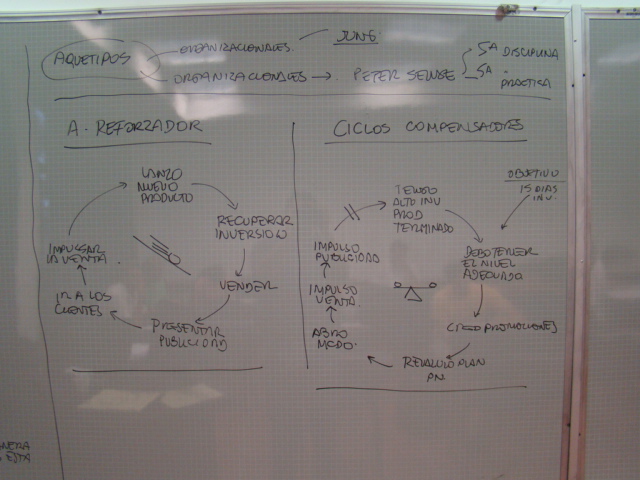 JUNG
AQUETIPOS
ORGANIZACIONALES
ORGANIZACIONALES → PETER SENGE
5ª DISCIPLINA
5ª
PRACTICA
A. REFORZADOR
LANZO
NUEVO
PRODUCTO
RECUPERAR
INVERSION
VENDER
PRESENTAR
PUBLICIDAD
IR A LOS
CLIENTES
IMPULSAR
LA VENTA
CICLOS COMPENSADORES
OBJETIVO
15 DIAS
INV.
TENGO
ALTO INV
PROD
TERMINADO
DEBO TENER
EL NIVEL
ADECUADO
CREO PROMOCIONES
REVALUO PLAN
ABRO
MCDO.
IMPULSO
VENTA
IMPULSO
PUBLICIDAD
ESTA